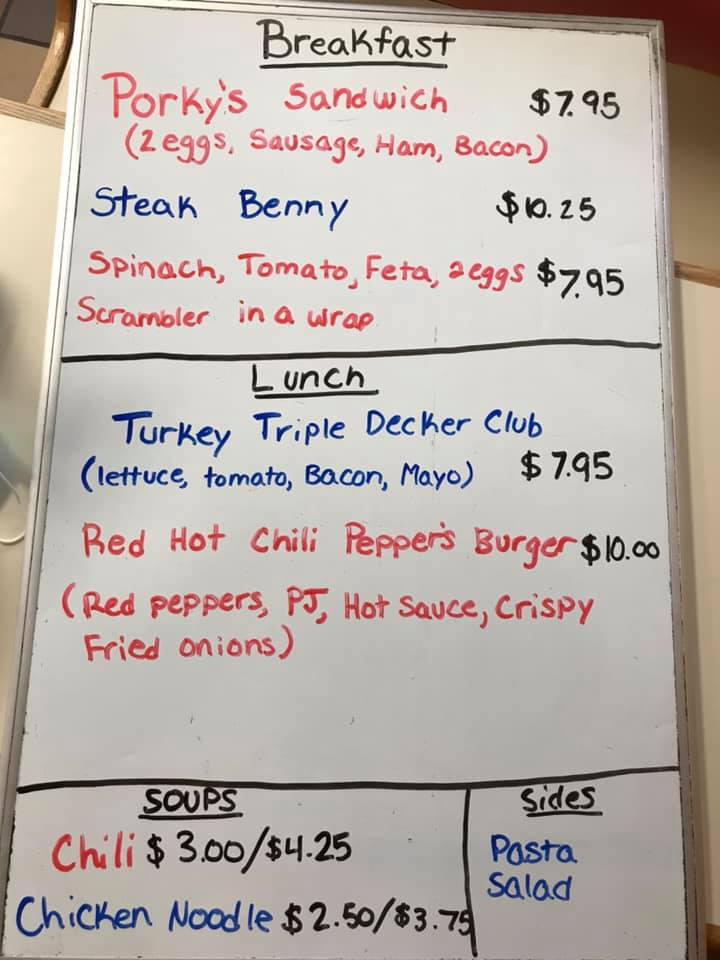 Breakfast
Porky's Sandwich $7.95
(2 eggs, Sausage, Ham, Bacon)
Steak Benny $10.25
Spinach, Tomato, Feta, 2 eggs $7.95
Scrambler in a wrap
Lunch
Turkey Triple Decker Club
(lettuce, tomato, Bacon, Mayo) $7.95
Red Hot Chili Pepper's Burger $10.00
(Red peppers, PJ, Hot Sauce, Crispy
Fried onions)
SOUPS
Chili $3.00/$4.25
Chicken Noodle $2.50/$3.75
Sides
Pasta
Salad